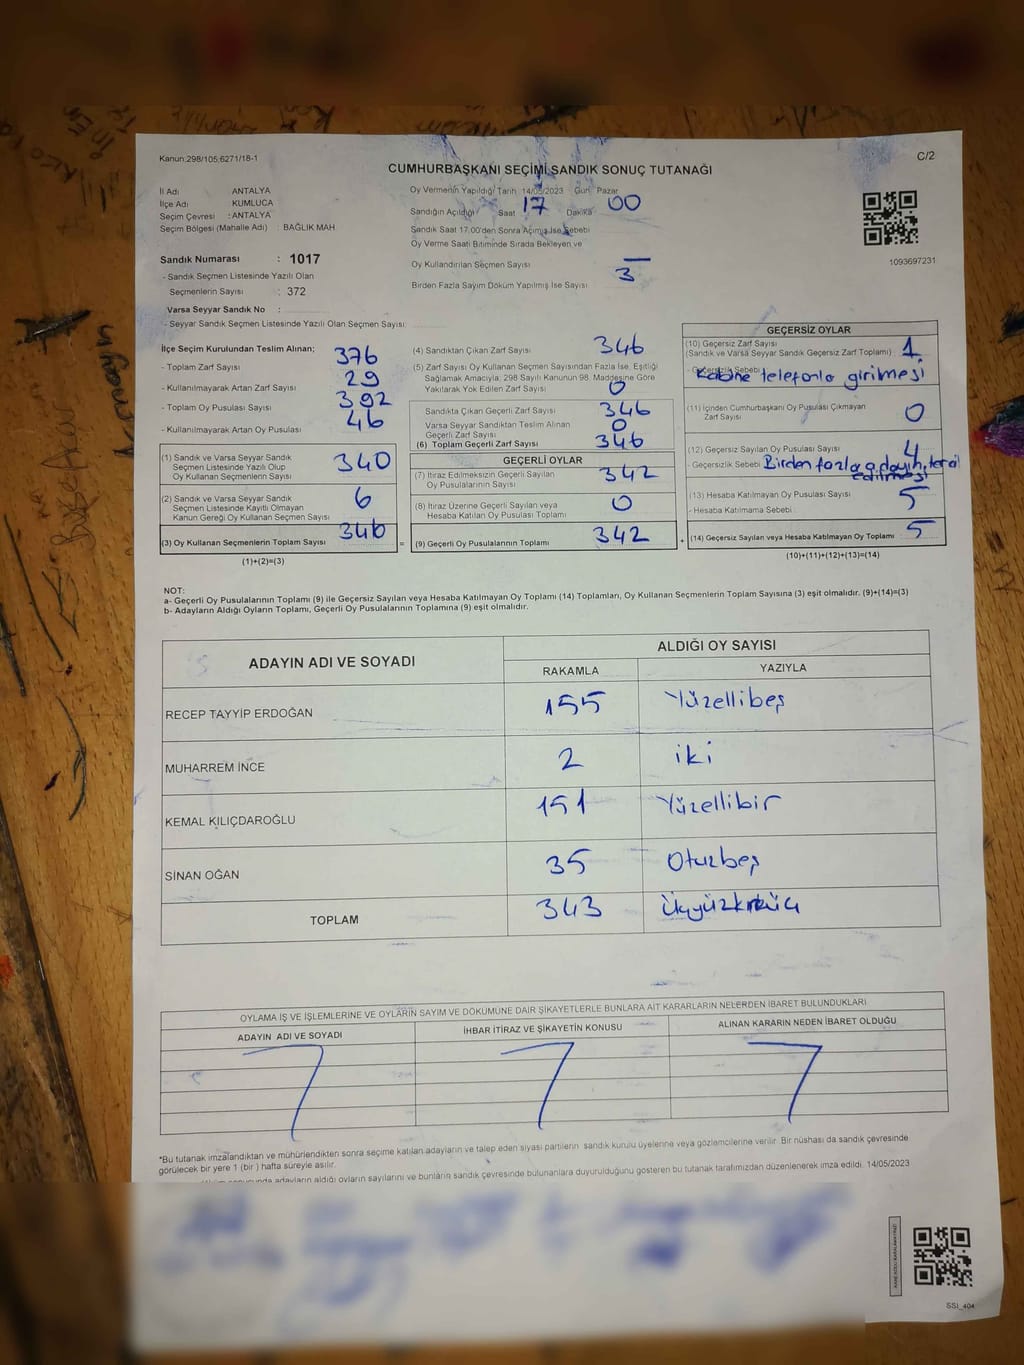 Kanun.298/105;6271/18-1
C/2
CUMHURBAŞKANI SEÇİMİ SANDIK SONUÇ TUTANAĞI
İl Adı ANTALYA
İlçe Adı KUMLUCA
Seçim Çevresi : ANTALYA
Seçim Bölgesi (Mahalle Adı) : BAĞLIK MAH.
Oy Vermenin Yapıldığı Tarih 14/05/2023 Gün Pazar
Sandığın Açıldığı Saat 17 Dakika 00
Sandık Saat 17.00'den Sonra Açılmış İse Sebebi
Oy Verme Saati Bitiminde Sırada Bekleyen ve
Oy Kullandırılan Seçmen Sayısı —
Birden Fazla Sayım Döküm Yapılmış İse Sayısı 3
1093697231
Sandık Numarası : 1017
- Sandık Seçmen Listesinde Yazılı Olan
Seçmenlerin Sayısı : 372
Varsa Seyyar Sandık No :
- Seyyar Sandık Seçmen Listesinde Yazılı Olan Seçmen Sayısı:
İlçe Seçim Kurulundan Teslim Alınan;
- Toplam Zarf Sayısı 376
- Kullanılmayarak Artan Zarf Sayısı 29
- Toplam Oy Pusulası Sayısı 392
- Kullanılmayarak Artan Oy Pusulası 46
(1) Sandık ve Varsa Seyyar Sandık
Seçmen Listesinde Yazılı Olup
Oy Kullanan Seçmenlerin Sayısı 340
(2) Sandık ve Varsa Seyyar Sandık
Seçmen Listesinde Kayıtlı Olmayan
Kanun Gereği Oy Kullanan Seçmen Sayısı 6
(3) Oy Kullanan Seçmenlerin Toplam Sayısı 346
(1)+(2)=(3)
(4) Sandıktan Çıkan Zarf Sayısı 346
(5) Zarf Sayısı Oy Kullanan Seçmen Sayısından Fazla İse, Eşitliği
Sağlamak Amacıyla, 298 Sayılı Kanunun 98. Maddesine Göre
Yakılarak Yok Edilen Zarf Sayısı 0
Sandıkta Çıkan Geçerli Zarf Sayısı 346
Varsa Seyyar Sandıktan Teslim Alınan
Geçerli Zarf Sayısı 0
(6) Toplam Geçerli Zarf Sayısı 346
GEÇERLİ OYLAR
(7) İtiraz Edilmeksizin Geçerli Sayılan
Oy Pusulalarının Sayısı 342
(8) İtiraz Üzerine Geçerli Sayılan veya
Hesaba Katılan Oy Pusulası Toplamı 0
= (9) Geçerli Oy Pusulalarının Toplamı 342
GEÇERSİZ OYLAR
(10) Geçersiz Zarf Sayısı
(Sandık ve Varsa Seyyar Sandık Geçersiz Zarf Toplamı) 1
- Geçersizlik Sebebi
Kabine telefonla girilmesi
(11) İçinden Cumhurbaşkanı Oy Pusulası Çıkmayan
Zarf Sayısı 0
(12) Geçersiz Sayılan Oy Pusulası Sayısı 4
- Geçersizlik Sebebi Birden fazla adayın tercih
edilmesi
(13) Hesaba Katılmayan Oy Pusulası Sayısı 5
- Hesaba Katılmama Sebebi
+ (14) Geçersiz Sayılan veya Hesaba Katılmayan Oy Toplamı 5
(10)+(11)+(12)+(13)=(14)
NOT:
a- Geçerli Oy Pusulalarının Toplamı (9) ile Geçersiz Sayılan veya Hesaba Katılmayan Oy Toplamı (14) Toplamları, Oy Kullanan Seçmenlerin Toplam Sayısına (3) eşit olmalıdır. (9)+(14)=(3)
b- Adayların Aldığı Oyların Toplamı, Geçerli Oy Pusulalarının Toplamına (9) eşit olmalıdır.
ADAYIN ADI VE SOYADI ALDIĞI OY SAYISI
RAKAMLA YAZIYLA
RECEP TAYYİP ERDOĞAN 155 Yüzellibeş
MUHARREM İNCE 2 iki
KEMAL KILIÇDAROĞLU 151 Yüzellibir
SİNAN OĞAN 35 Otuzbeş
TOPLAM 343
OYLAMA İŞ VE İŞLEMLERİNE VE OYLARIN SAYIM VE DÖKÜMÜNE DAİR ŞİKAYETLERLE BUNLARA AİT KARARLARIN NELERDEN İBARET BULUNDUKLARI
ADAYIN ADI VE SOYADI İHBAR İTİRAZ VE ŞİKAYETİN KONUSU ALINAN KARARIN NEDEN İBARET OLDUĞU
*Bu tutanak imzalandıktan ve mühürlendikten sonra seçime katılan adayların ve talep eden siyasi partilerin sandık kurulu üyelerine veya gözlemcilerine verilir. Bir nüshası da sandık çevresinde
görülecek bir yere 1 (bir) hafta süreyle asılır.
adayların aldığı oyların sayılarını ve bunların sandık çevresinde bulunanlara duyurulduğunu gösteren bu tutanak tarafımızdan düzenlenerek imza edildi. 14/05/2023
SSI_404